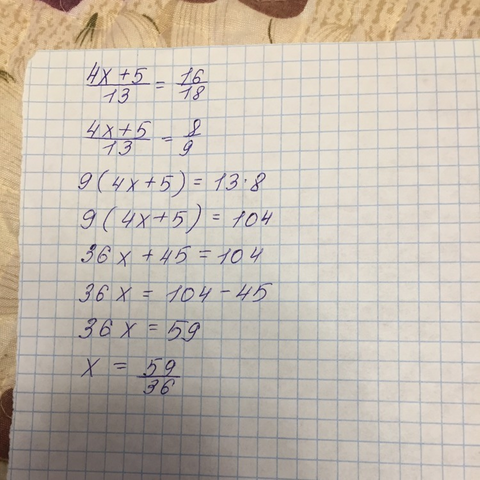 4x+5/13 = 16/18
4x+5/13 = 8/9
9(4x+5) = 13·8
9(4x+5) = 104
36x+45=104
36x = 104-45
36x = 59
x = 59/36